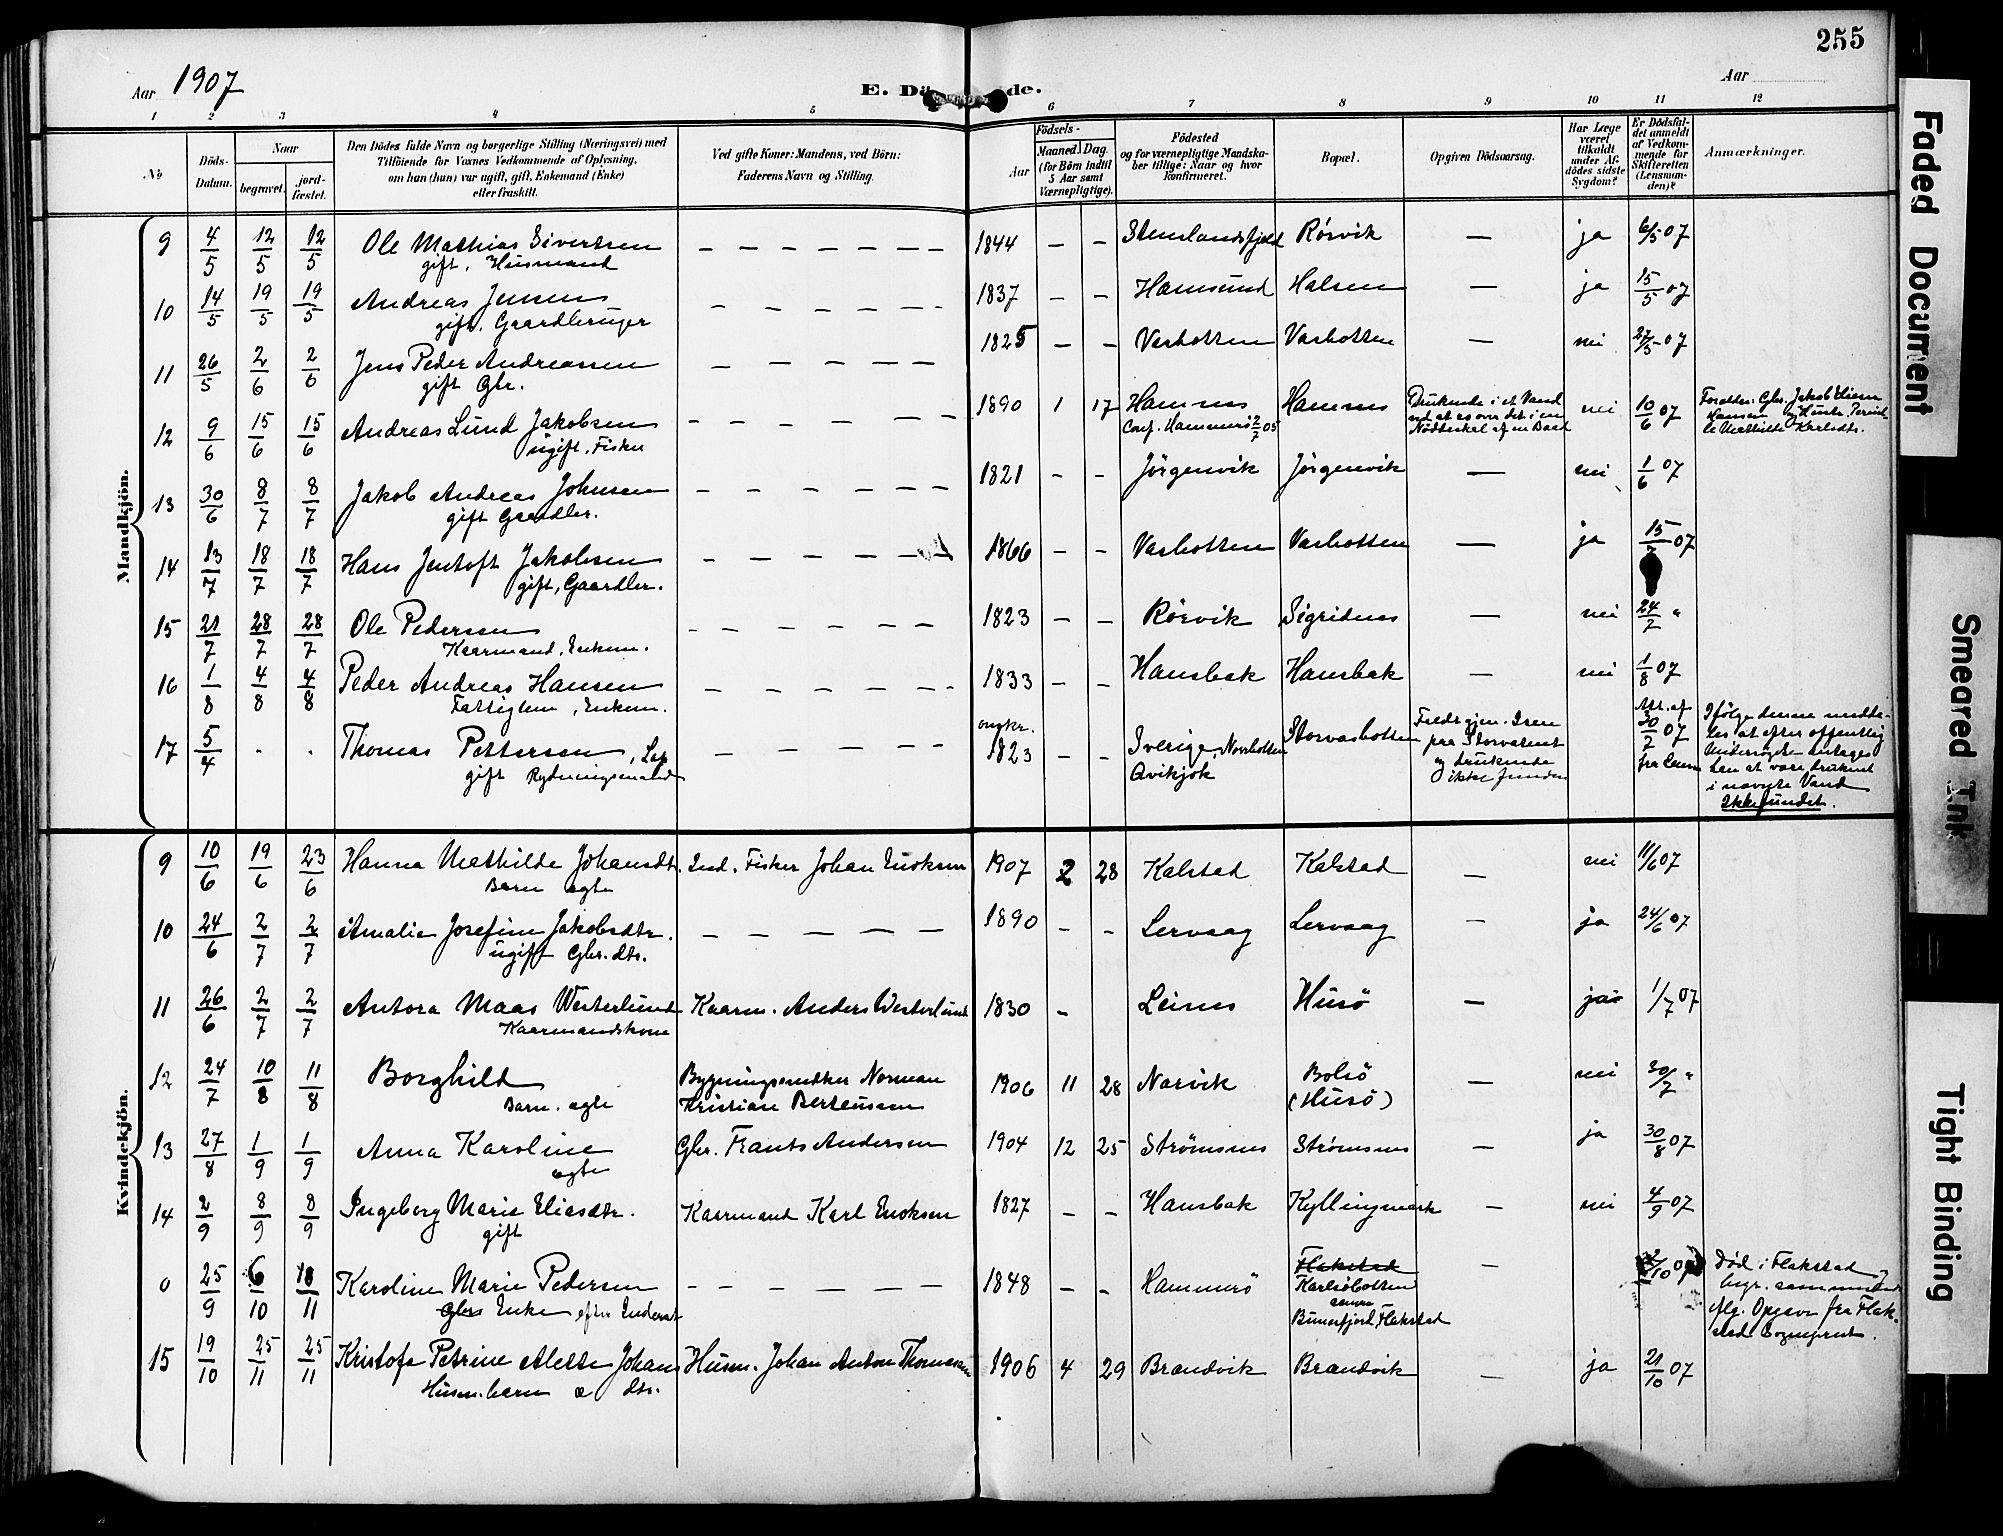 255
Aar 1907
E. Dö
de.
Aar
1 2 3 4 5 6 7 8 9 10 11 12
No
Döds-Datum.
Naar
begravet.
jord-fæstet.
Den Dödes fulde Navn og borgerlige Stilling (Næringsvei) med
Tilföiende for Voxnes Vedkommende af Oplysning,
om han (hun) var ugift, gift, Enkemand (Enke)
eller fraskilt.
Ved gifte Koner: Mandens, ved Börn:
Faderens Navn og Stilling.
Födsels-
Aar
Maaned. Dag.
(for Börn indtil
5 Aar samt
Værnepligtige).
Födested
og for værnepligtige Mandska-
ber tillige: Naar og hvor
Konfirmeret.
Bopæl.
Opgiven Dödsaarsag.
Har Læge
været
tilkaldt
under Af-
dödes sidste
Sygdom?
Er Dödsfal-
det anmeldt
af Vedkom-
mende for
Skifteretten
(Lensman-
den)?
Anmærkninger.
Mandkjön.
9 4/5 12/5 12/5 Ole Mathias Sivertsen — — — — — — — 1844 — — Stenslandsfjeld Rörvik — ja 6/5 07
gift, Husmand
10 14/5 19/5 19/5 Andreas Jensen — — — — — — — 1837 — — Hamsund Halsen — ja 15/5 07
gift. Gaardbruger
11 26/5 2/6 2/6 Jens Peder Andreassen — — — — — — 1825 — — Vasbotten Vasbotten — nei 27/5 07
gift Gbr.
12 9/6 15/6 15/6 Andreas Lund Jakobsen — — — — — — 1890 1 17 Hamnes Hamnes nei 10/6 07
ugift, Fisker
Conf. Hammerö 2/7 05
Drukende i et Vand
ved at ro over det i en
Nöddeskal af en Baad
Foreldr: Gbr. Jakob
Hansen og Hustr.
Mathilde Karlsdtr.
13 30/6 8/7 8/7 Jakob Andreas Johnsen — — — — — — 1821 — — Jörgenvik Jörgenvik — nei 1/6 07
gift Gaardbr.
14 13/7 18/7 18/7 Hans Jentoft Jakobsen — — — — — — 1866 — — Vasbotten Vasbotten — ja 15/ 07
gift, Gaardbr.
15 21/7 28/7 28/7 Ole Pedersen — — — — — — 1823 — — Rörvik Sigridnes — nei 24/7 "
Kaarmand, Enkem.
16 1/8 4/8 4/8 Peder Andreas Hansen — — — — — — 1833 — — Hansbak Hansbak — nei 1/8 07
Fattiglem, Enkem.
17 5/4 . . Thomas Pettersen, Lap — — — — — — omkr. 1823 — — Sverige, Norrbotten Storvasbotten
gift Rydningsmand
Qvikjok
Faldt gjen. Isen
paa Storvatnet
og drukende
ikke funden
Att. af
30/7 07
fra Lensm
Ifölge denne medde-
les at efter offentlig
Undersögelse antages
han at være druknet
i nævnte Vand
Ikke fundet.
Kvindekjön.
9 10/6 19/6 23/6 Hanna Mathilde Johansdtr. Ind. Fisker Johan Enoksen 1907 2 28 Kalstad Kalstad — nei 11/6 07
Barn ægte
10 24/6 2/7 2/7 Amalie Josefine Jakobsdtr. — — — — — 1890 — — Lervaag Lervaag — ja 24/6 07
ugift Gbr. dtr.
11 26/6 2/7 2/7 Antora Maas Westerlund Kaarm. Anders Westerlund 1830 — Leines Husö — ja 1/7 07
Kaarmandskone
12 24/7 10/8 11/8 Borghild Bygningssnedker Norman 1906 11 28 Narvik Bolsö — nei 30/7 "
Barn. ægte Kristian Berteussen (Husö)
13 27/8 1/9 1/9 Anna Karoline Gbr. Frants Andersen 1904 12 25 Strömsnes Strömsnes — ja 30/8 07
ægte
14 2/9 8/9 8/9 Ingeborg Marie Eliasdtr. Kaarmand Karl Enoksen 1827 — — Hansbak Kyllingmark — nei 4/9 07
gift
0 25/9 6/10 /11 Karoline Marie Pedersen — — — — — 1848 — — Hammerö Flakstad — /10 07
Gbrs Enke efter
Karlsöbotten
Bunnfjord, Flakstad
Död i Flakstad,
begr. sammesteds
Afg. Opgave fra Flak-
stad Sogneprest.
15 19/10 25/11 25/11 Kristofa Petrine Alette Johans Husm. Johan Anton Thomassen 1906 4 29 Brandvik Brandvik — ja 21/10 07
Husm. barn æ dtr.
Faded Document
Smeared Ink
Tight Binding